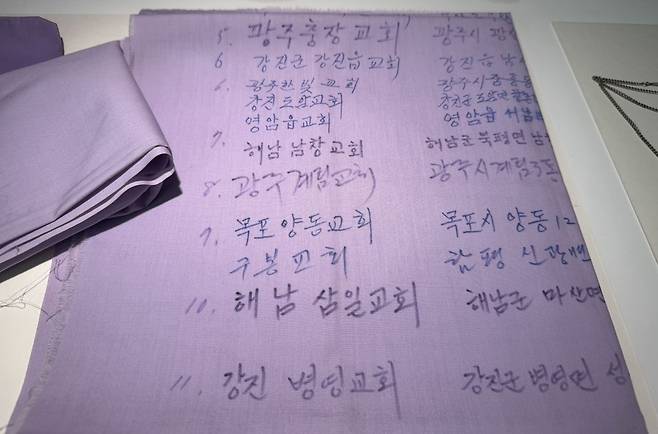 5. 광주충장교회 광주시
6. 강진군 강진읍교회 강진읍
6. 광주한빛교회 광주시
강진도암교회 강진군 도암면
영암읍교회 영암읍
7. 해남 남창교회 해남군 북평면
8. 광주계림교회 광주시 계림3동
9. 목포양동교회 목포시 양동 12
구봉교회 함평 신광면
10. 해남 삼일교회 해남군 마산면
11. 강진 병영교회 강진군 병영면 성